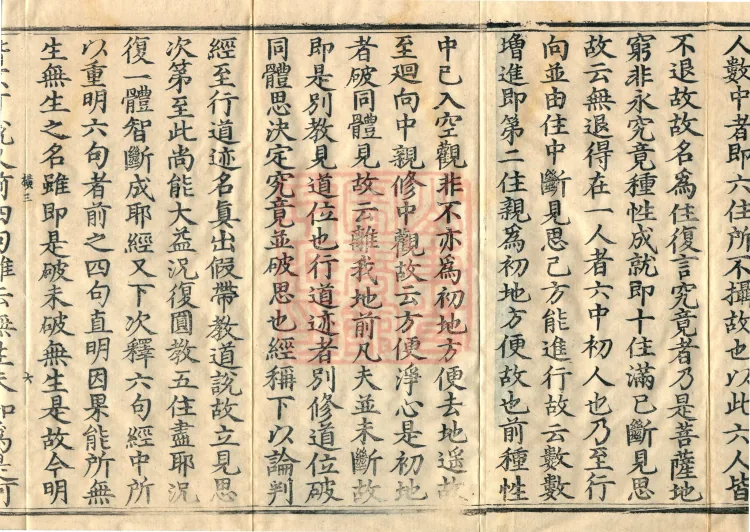 人數中者即六住所不攝故也以此六人皆
不退故故名爲住復言究竟者乃是菩薩地
窮非永究竟種性成就即十住滿已斷見思
故云無退得在一人者六中初人也乃至行
向並由住中斷見思已方能進行故云數數
增進即第二住親爲初地方便故也前種性
中已入空觀非不亦爲初地方便去地遥故
至迴向中親修中觀故云方便淨心是初地
者破同體見故云離我地前凡夫並未斷故
即是別教見道位也行道迹者別修道位破
同體思決定究竟並破思也經稱下以論判
經至行道迹名眞出假帶教道說故立見思
次第至此尚能大益況復圓教五住盡耶況
復一體智斷成耶經又下次釋六句經中所
以重明六句者前之四句直明因果能所無
生無生之名雖即是破未破無生是故今明
橫三
六